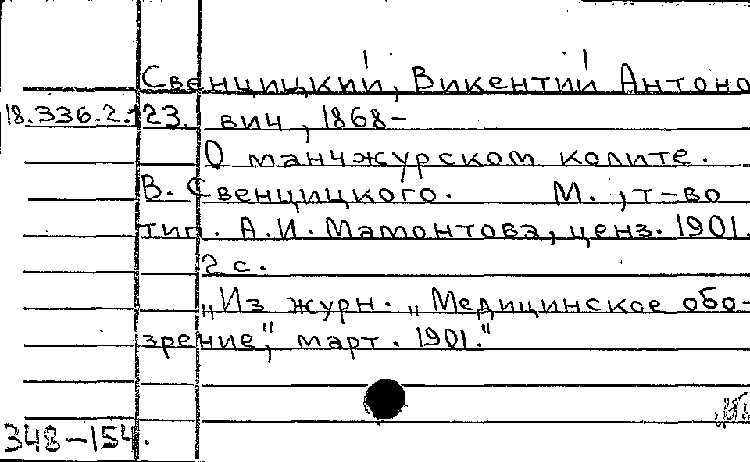 Свенцицкий, Викентий Антоно
18.336.2.123. вич, 1868-
О манчжурском колите.
В. Свенцицкого. М., т-во
тип. А.И. Мамонтова, ценз. 1901.
2 с.
„Из журн. „Медицинское обо-
зрение", март. 1901."
348-154.